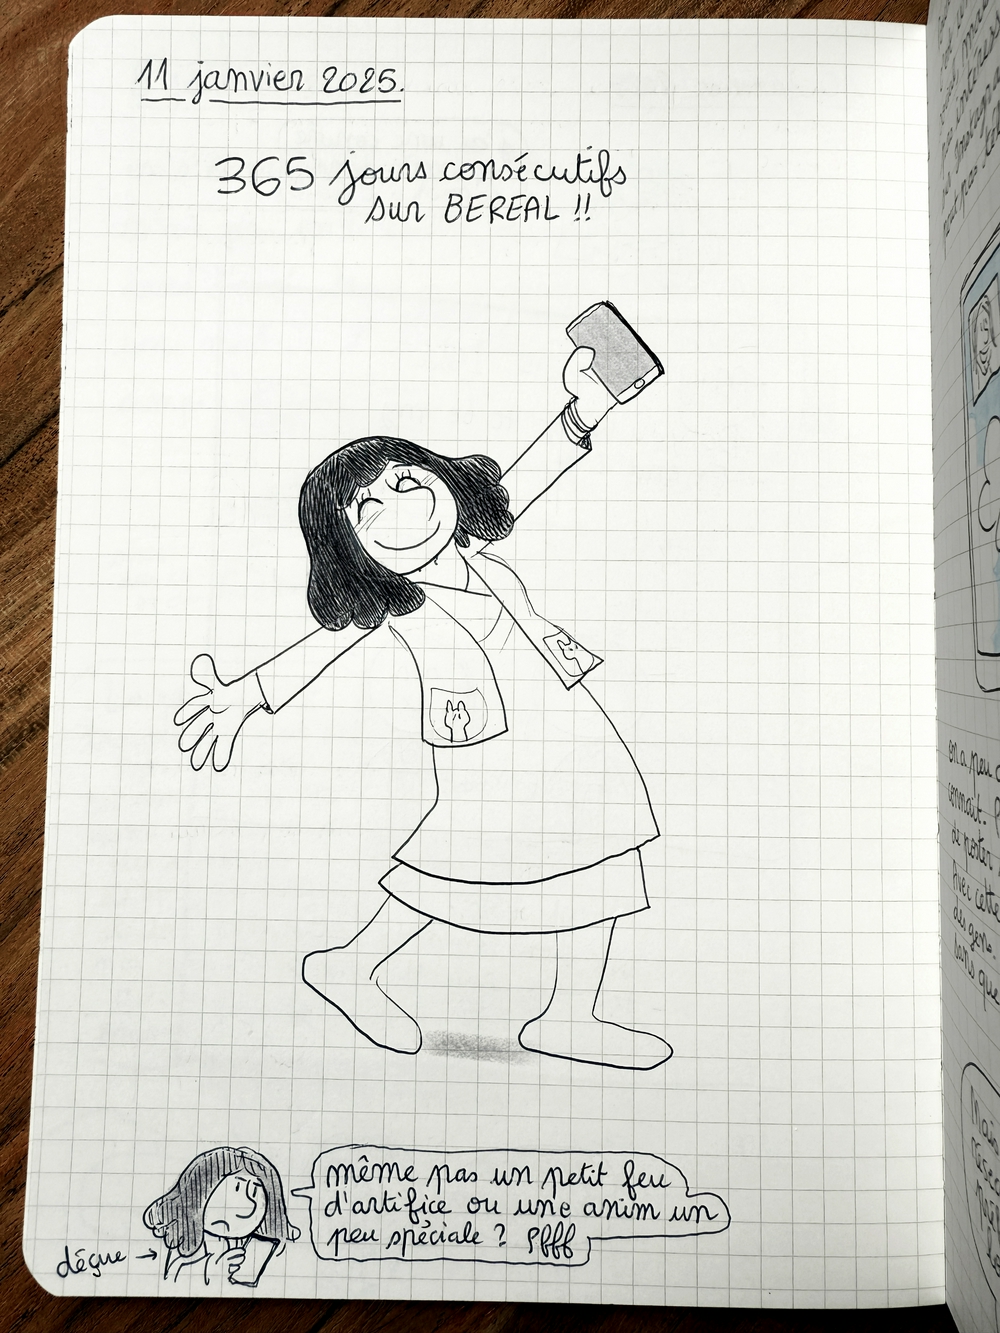 11 janvier 2025.
365 jours consécutifs
sur BEREAL !!
même pas un petit feu
d'artifice ou une anim un
peu spéciale ? Pffff
déçue →
on a peu
connait.
de poster
Avec cette
des gens.
sans que
mais